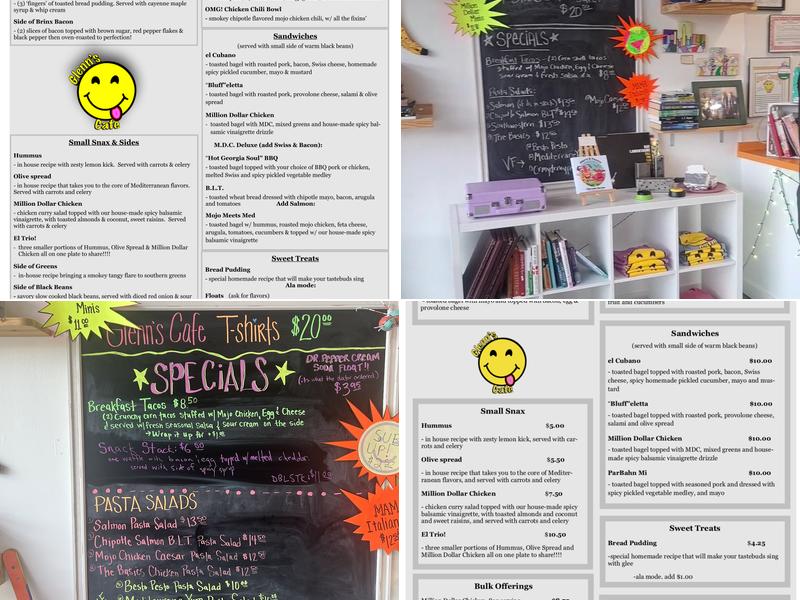 - (3) 'fingers' of toasted bread pudding. Served with cayenne maple
syrup & whip cream
Side of Brinx Bacon
- (2) slices of bacon topped with brown sugar, red pepper flakes &
black pepper then oven-roasted to perfection!
Glenn's
Cafe
Small Snax & Sides
Hummus
- in house recipe with zesty lemon kick. Served with carrots & celery
Olive spread
- in house recipe that takes you to the core of Mediterranean flavors.
Served with carrots and celery
Million Dollar Chicken
- chicken curry salad topped with our house-made spicy balsamic
vinaigrette, with toasted almonds & coconut, sweet raisins. Served
with carrots & celery
El Trio!
- three smaller portions of Hummus, Olive Spread & Million Dollar
Chicken all on one plate to share!!!!
Side of Greens
- in-house recipe bringing a smokey tangy flare to southern greens
Side of Black Beans
- savory slow cooked black beans, served with diced red onion & sour
OMG! Chicken Chili Bowl
- smokey chipotle flavored mojo chicken chili, w/ all the fixins'
Sandwiches
(served with small side of warm black beans)
el Cubano
- toasted bagel with roasted pork, bacon, Swiss cheese, homemade
spicy pickled cucumber, mayo & mustard
"Bluff"eletta
- toasted bagel with roasted pork, provolone cheese, salami & olive
spread
Million Dollar Chicken
- toasted bagel with MDC, mixed greens and house-made spicy bal-
samic vinaigrette drizzle
M.D.C. Deluxe (add Swiss & Bacon):
"Hot Georgia Soul" BBQ
- toasted bagel topped with your choice of BBQ pork or chicken,
melted Swiss and spicy pickled vegetable medley
B.L.T.
- toasted wheat bread dressed with chipotle mayo, bacon, arugula
and tomatoes Add Salmon:
Mojo Meets Med
- toasted bagel w/ hummus, roasted mojo chicken, feta cheese,
arugula, tomatoes, cucumbers & topped w/ our house-made spicy
balsamic vinaigrette
Sweet Treats
Bread Pudding
- special homemade recipe that will make your tastebuds sing
Ala mode:
Floats (ask for flavors)
Million
Dollar
Minis
$20
SPECIALS
Breakfast Tacos - (2) corn shell tacos
stuffed w/ Mojo Chicken, Egg & Cheese
Sour cream & Fresh Salsa
Pasta Salads:
The Basics
Besto Pesto
VF
Minis
$11.00
Glenn's Cafe T-shirts $20.00
SPECiALS
DR. PEPPER CREAM
SODA FLOAT!!
(it's what the doctor ordered)
$3.95
Breakfast Tacos $8.50
(2) Crunchy corn tacos stuffed w/ Mojo Chicken, Egg & Cheese
& served w/ fresh Seasonal Salsa & Sour cream on the side
→ Wrap it up for +$1.00
Snack Stack: $6.50
one waffle with bacon, egg topped w/ melted cheddar.
served with side of spicy syrup
DBL STK: $11.00
PASTA SALADS
Salmon Pasta Salad $13.50
Chipotle Salmon B.L.T. Pasta Salad $14.50
Mojo Chicken Caesar Pasta Salad $12.50
The Basics Chicken Pasta Salad $12.50
Besto Pesto Pasta Salad $10.00
MAM
Italian
- toasted bagel with mayo and topped with bacon, egg &
provolone cheese
Glenn's
Cafe
Small Snax
Hummus $5.00
- in house recipe with zesty lemon kick, served with car-
rots and celery
Olive $5.50
- in house recipe that takes you to the core of Mediter-
ranean flavors, and served with carrots and celery
Million Dollar Chicken $7.50
- chicken curry salad topped with our house-made spicy
balsamic vinaigrette, with toasted almonds and coconut
and sweet raisins, and served with carrots and celery
El Trio! $10.50
- three smaller portions of Hummus, Olive Spread and
Million Dollar Chicken all on one plate to share!!!!
Bulk Offerings
fruit and cucumbers
Sandwiches
(served with small side of warm black beans)
el Cubano $10.00
- toasted bagel topped with roasted pork, bacon, Swiss
cheese, spicy homemade pickled cucumber, mayo and mus-
tard
"Bluff"eletta $10.00
- toasted bagel topped with roasted pork, provolone cheese,
salami and olive spread
Million Dollar Chicken $10.00
- toasted bagel topped with MDC, mixed greens and house-
made spicy balsamic vinaigrette drizzle
ParBahn Mi $10.00
- toasted bagel topped with seasoned pork and dressed with
spicy pickled vegetable medley, and mayo
Sweet Treats
Bread Pudding $4.25
-special homemade recipe that will make your tastebuds sing
with glee
-ala mode, add $1.00